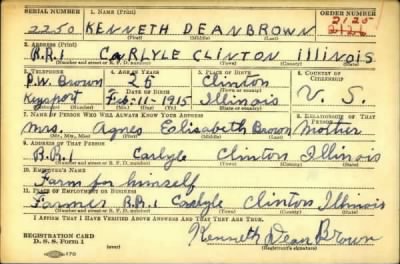 SERIAL NUMBER 1. NAME (Print) ORDER NUMBER
2250 KENNETH DEAN BROWN 2125
(First) (Middle) (Last) 2126
2. ADDRESS (Print)
R.R.1 CARLYLE CLINTON ILLINOIS
(Number and street or R. F. D. number) (Town) (County) (State)
3. TELEPHONE 4. AGE IN YEARS 5. PLACE OF BIRTH 6. COUNTRY OF CITIZENSHIP
P.W. Brown 25 Clinton
DATE OF BIRTH (Town or county)
Keysport Feb-11-1915 Illinois U. S.
(Exchange) (Number) (Mo.) (Day) (Yr.) (State or country)
7. NAME OF PERSON WHO WILL ALWAYS KNOW YOUR ADDRESS 8. RELATIONSHIP OF THAT PERSON
Mrs. Agnes Elisabeth Brown Mother
(Mr., Mrs., Miss) (First) (Middle) (Last)
9. ADDRESS OF THAT PERSON
R.R.1 Carlyle Clinton Illinois
(Number and street or R. F. D. number) (Town) (County) (State)
10. EMPLOYER'S NAME
Farm for himself
11. PLACE OF EMPLOYMENT OR BUSINESS
Farmer R.R.1 Carlyle Clinton Illinois
(Number and street or R. F. D. number) (Town) (County) (State)
I AFFIRM THAT I HAVE VERIFIED ABOVE ANSWERS AND THAT THEY ARE TRUE.
REGISTRATION CARD
D. S. S. Form 1 (over) Kenneth Dean Brown
(Registrant's signature)